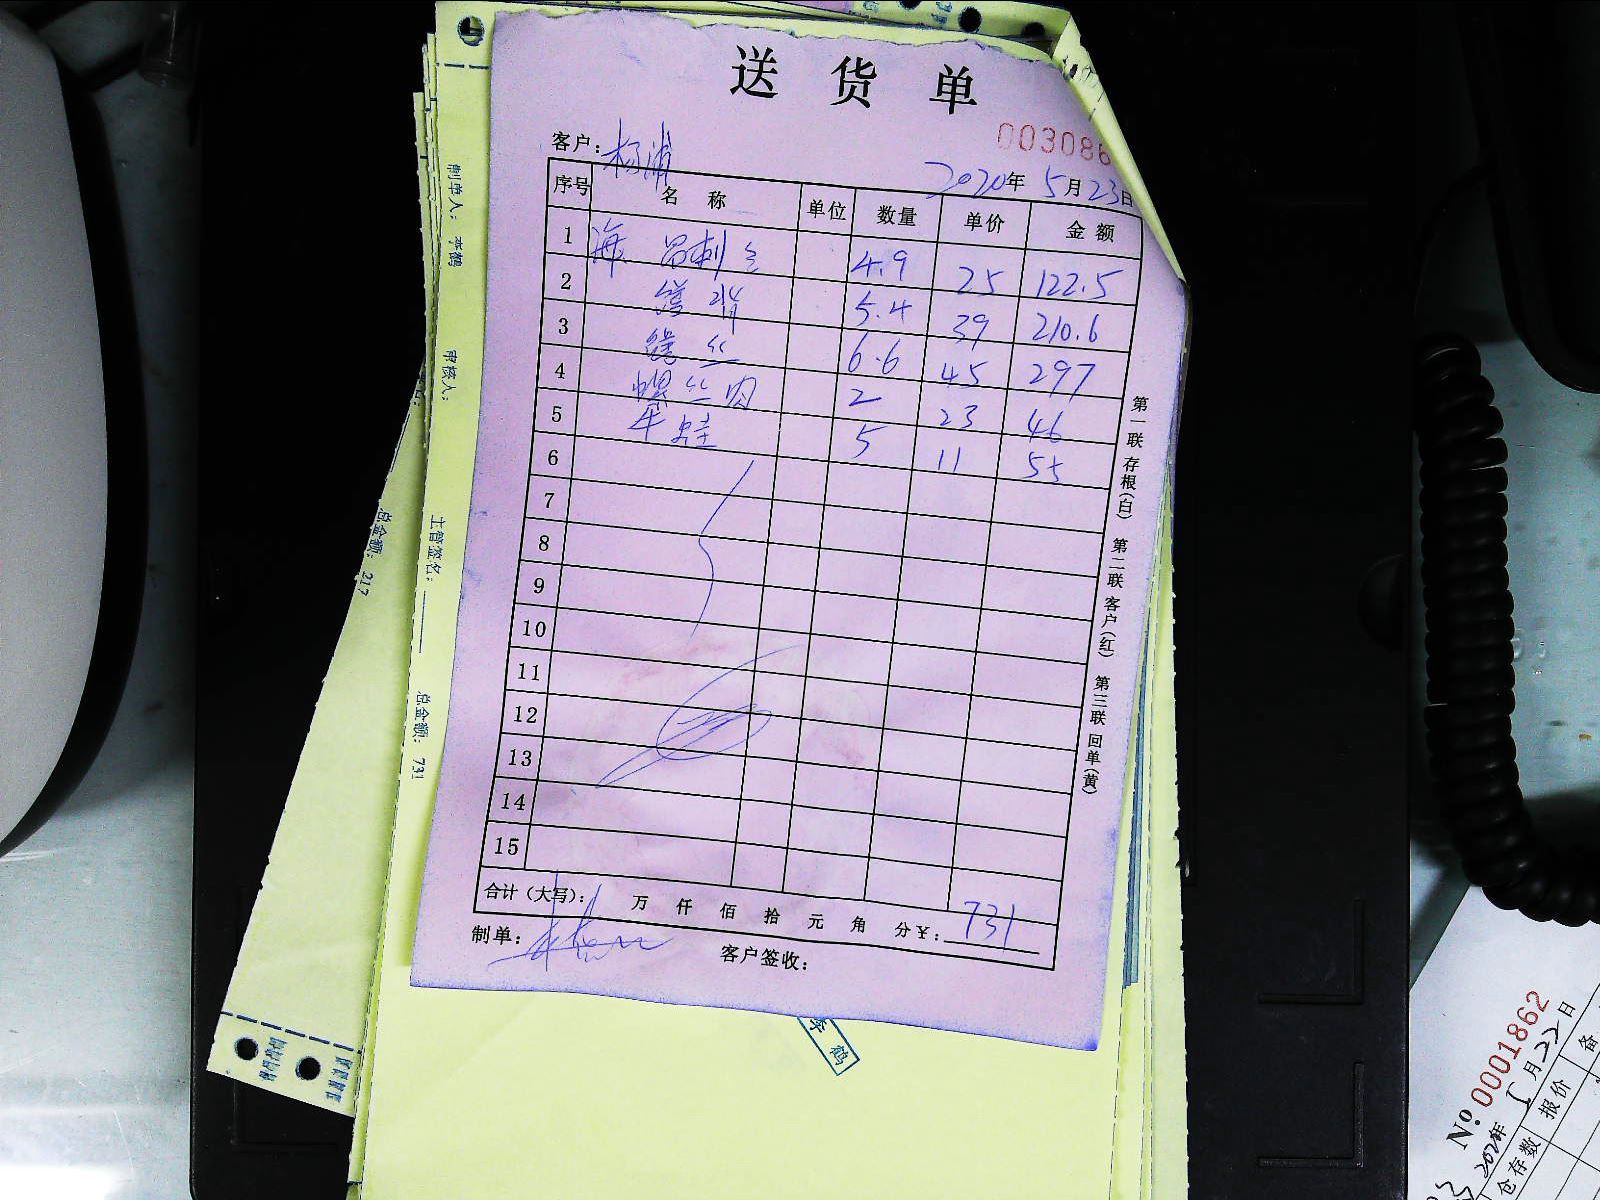 送 货 单
003086
客户: 杨浦
2020年 5月23日
序号 名 称 单位 数量 单价 金 额
1 海 昂刺鱼 4.9 25 122.5
2 鳝背 5.4 39 210.6
3 鳝丝 6.6 45 297
4 螺丝肉 2 23 46
5 牛蛙 5 11 55
6
7
8
9
10
11
12
13
14
15
合计(大写): 万 仟 佰 拾 元 角 分¥: 731
制单:
客户签收:
第一联 存根(白) 第二联 客户(红) 第三联 回单(黄)
制单人: 李鹤 审核人: 主管签名: 总金额: 731
总金额: 217
李鹤
№ 0001862
2020年 5月22日
仓存数 报价 备